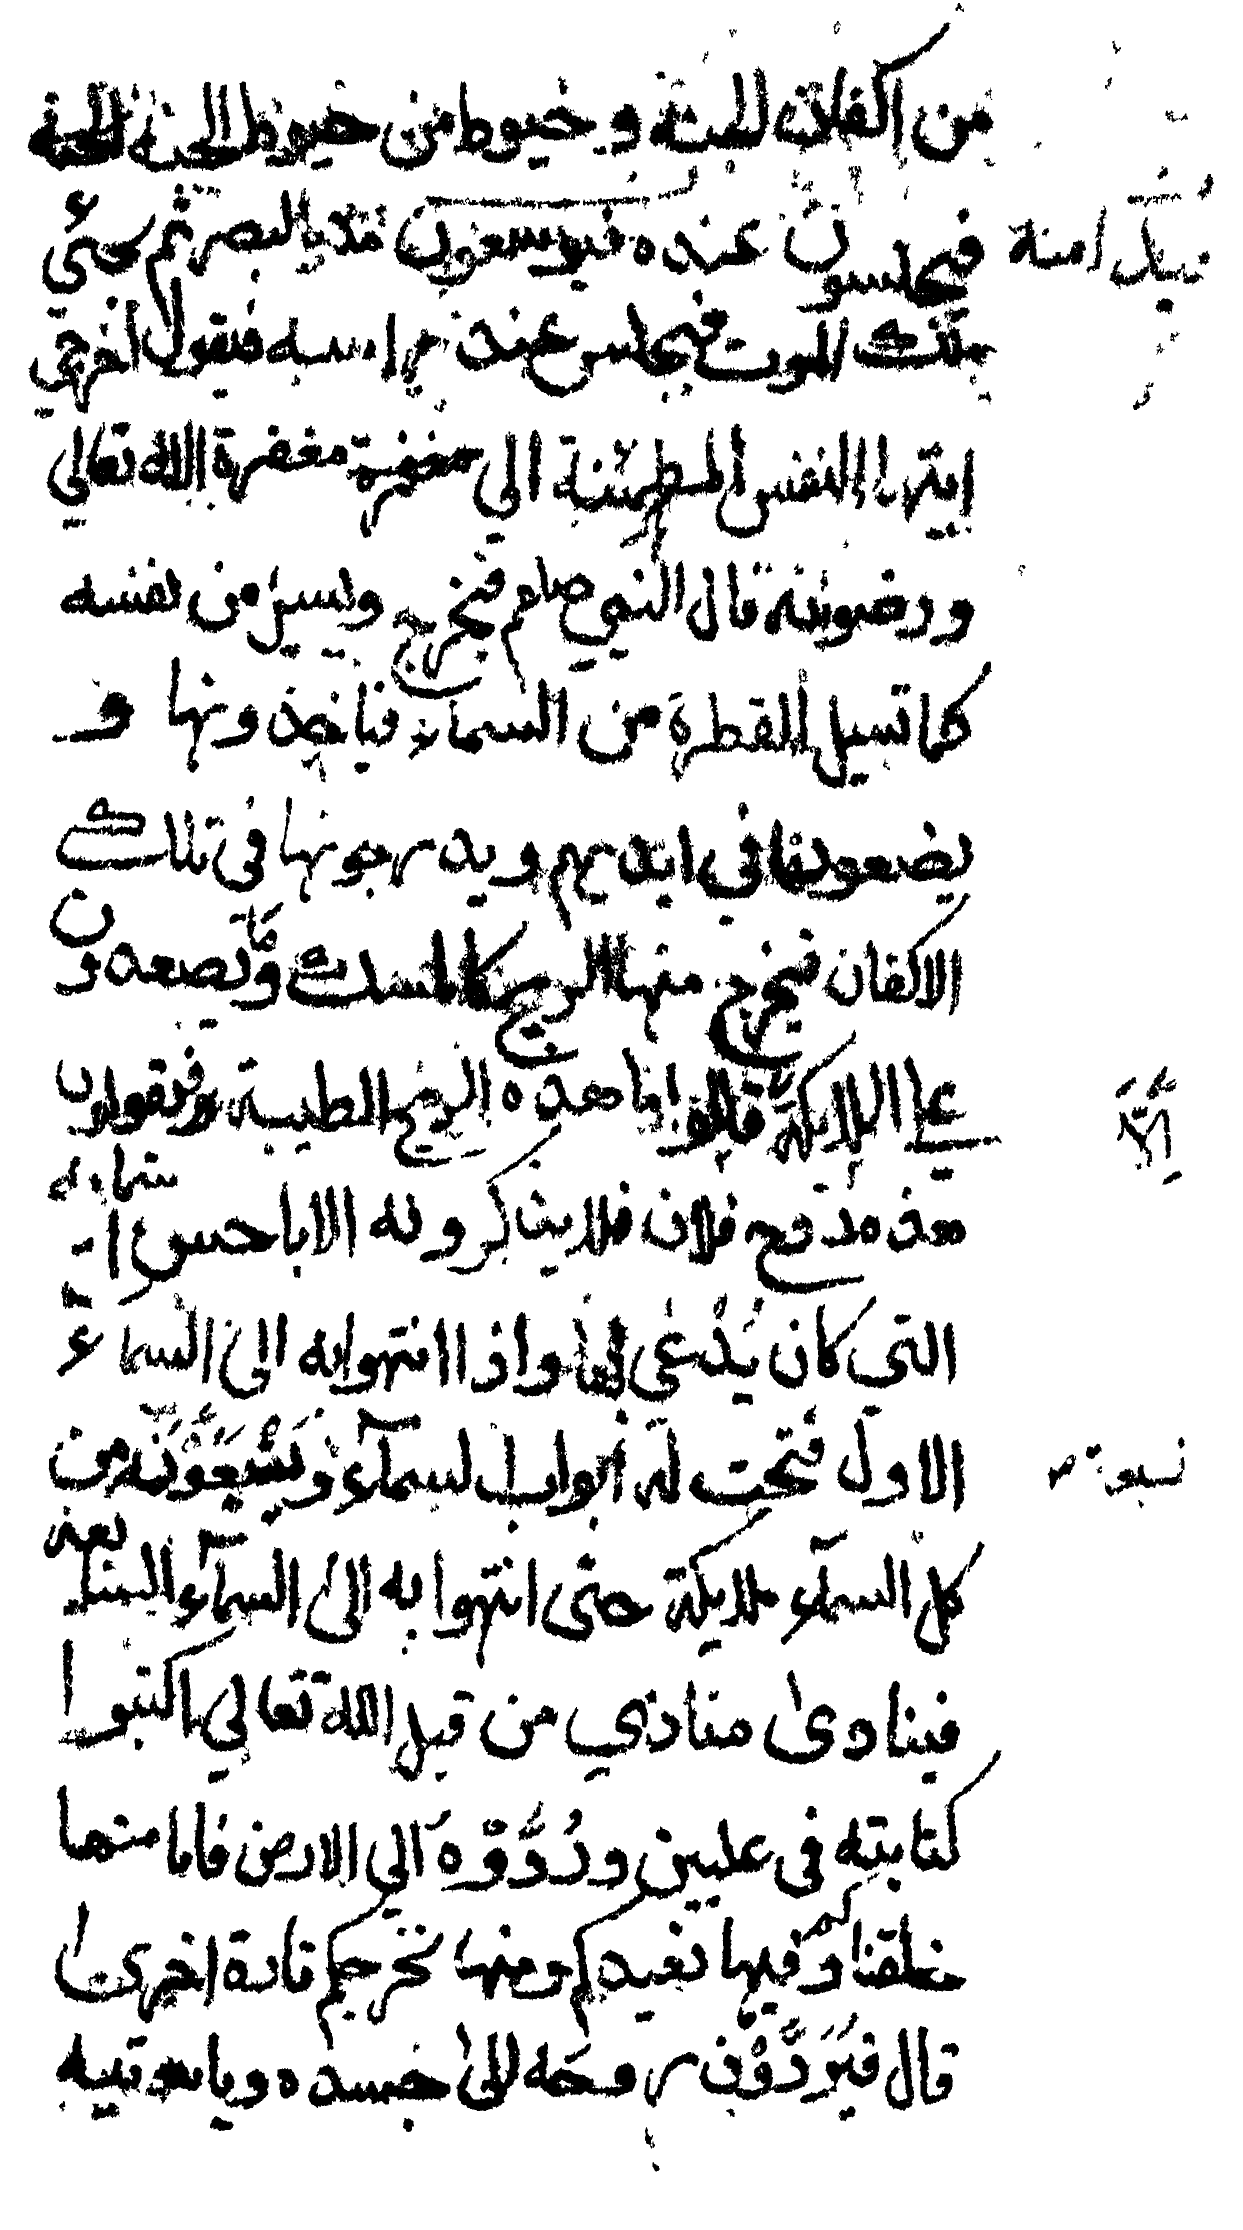 من اكفان الجنة و خيوط من خيوط الجنة
فيجلسون عنده فيوسعون مد البصر ثم يجئ
ملك الموت فيجلس عند راسه فيقول اخرجي
ايتها النفس المطمئنة الي مغفرة الله تعالي
ورضوانه قال النبي صلعم فتخرج ويسيل من نفسه
كما تسيل القطرة من السماء فياخذونها و
يضعونها في ايديهم ويدرجونها في تلك
الاكفان فيخرج منها الريح كالمسك وما يصعدون
علي الملايكة قالوا ما هذه الريح الطيبة فيقولون
هذه روح فلان فلا يذكرونه الا باحسن اسمايه
التي كان يُدْعٰي بها واذا انتهوا به الىٰ السماء
الاول فتحت له ابواب لسمآء ويشيعونه من
كل السمآء ملايكة حتى انتهوا به الىٰ السمآء السابعة
فينادىٰ منادي من قبل الله تعالي اكتبوا
كتابته فى عليين ورُدُّوْهُ الي الارض فاما منها
خلقناكم وفيها نعيدكم ومنها نخرجكم تارة اخرىٰ
قال فيَرُدُّوْن روحه الىٰ جسده وياتيه